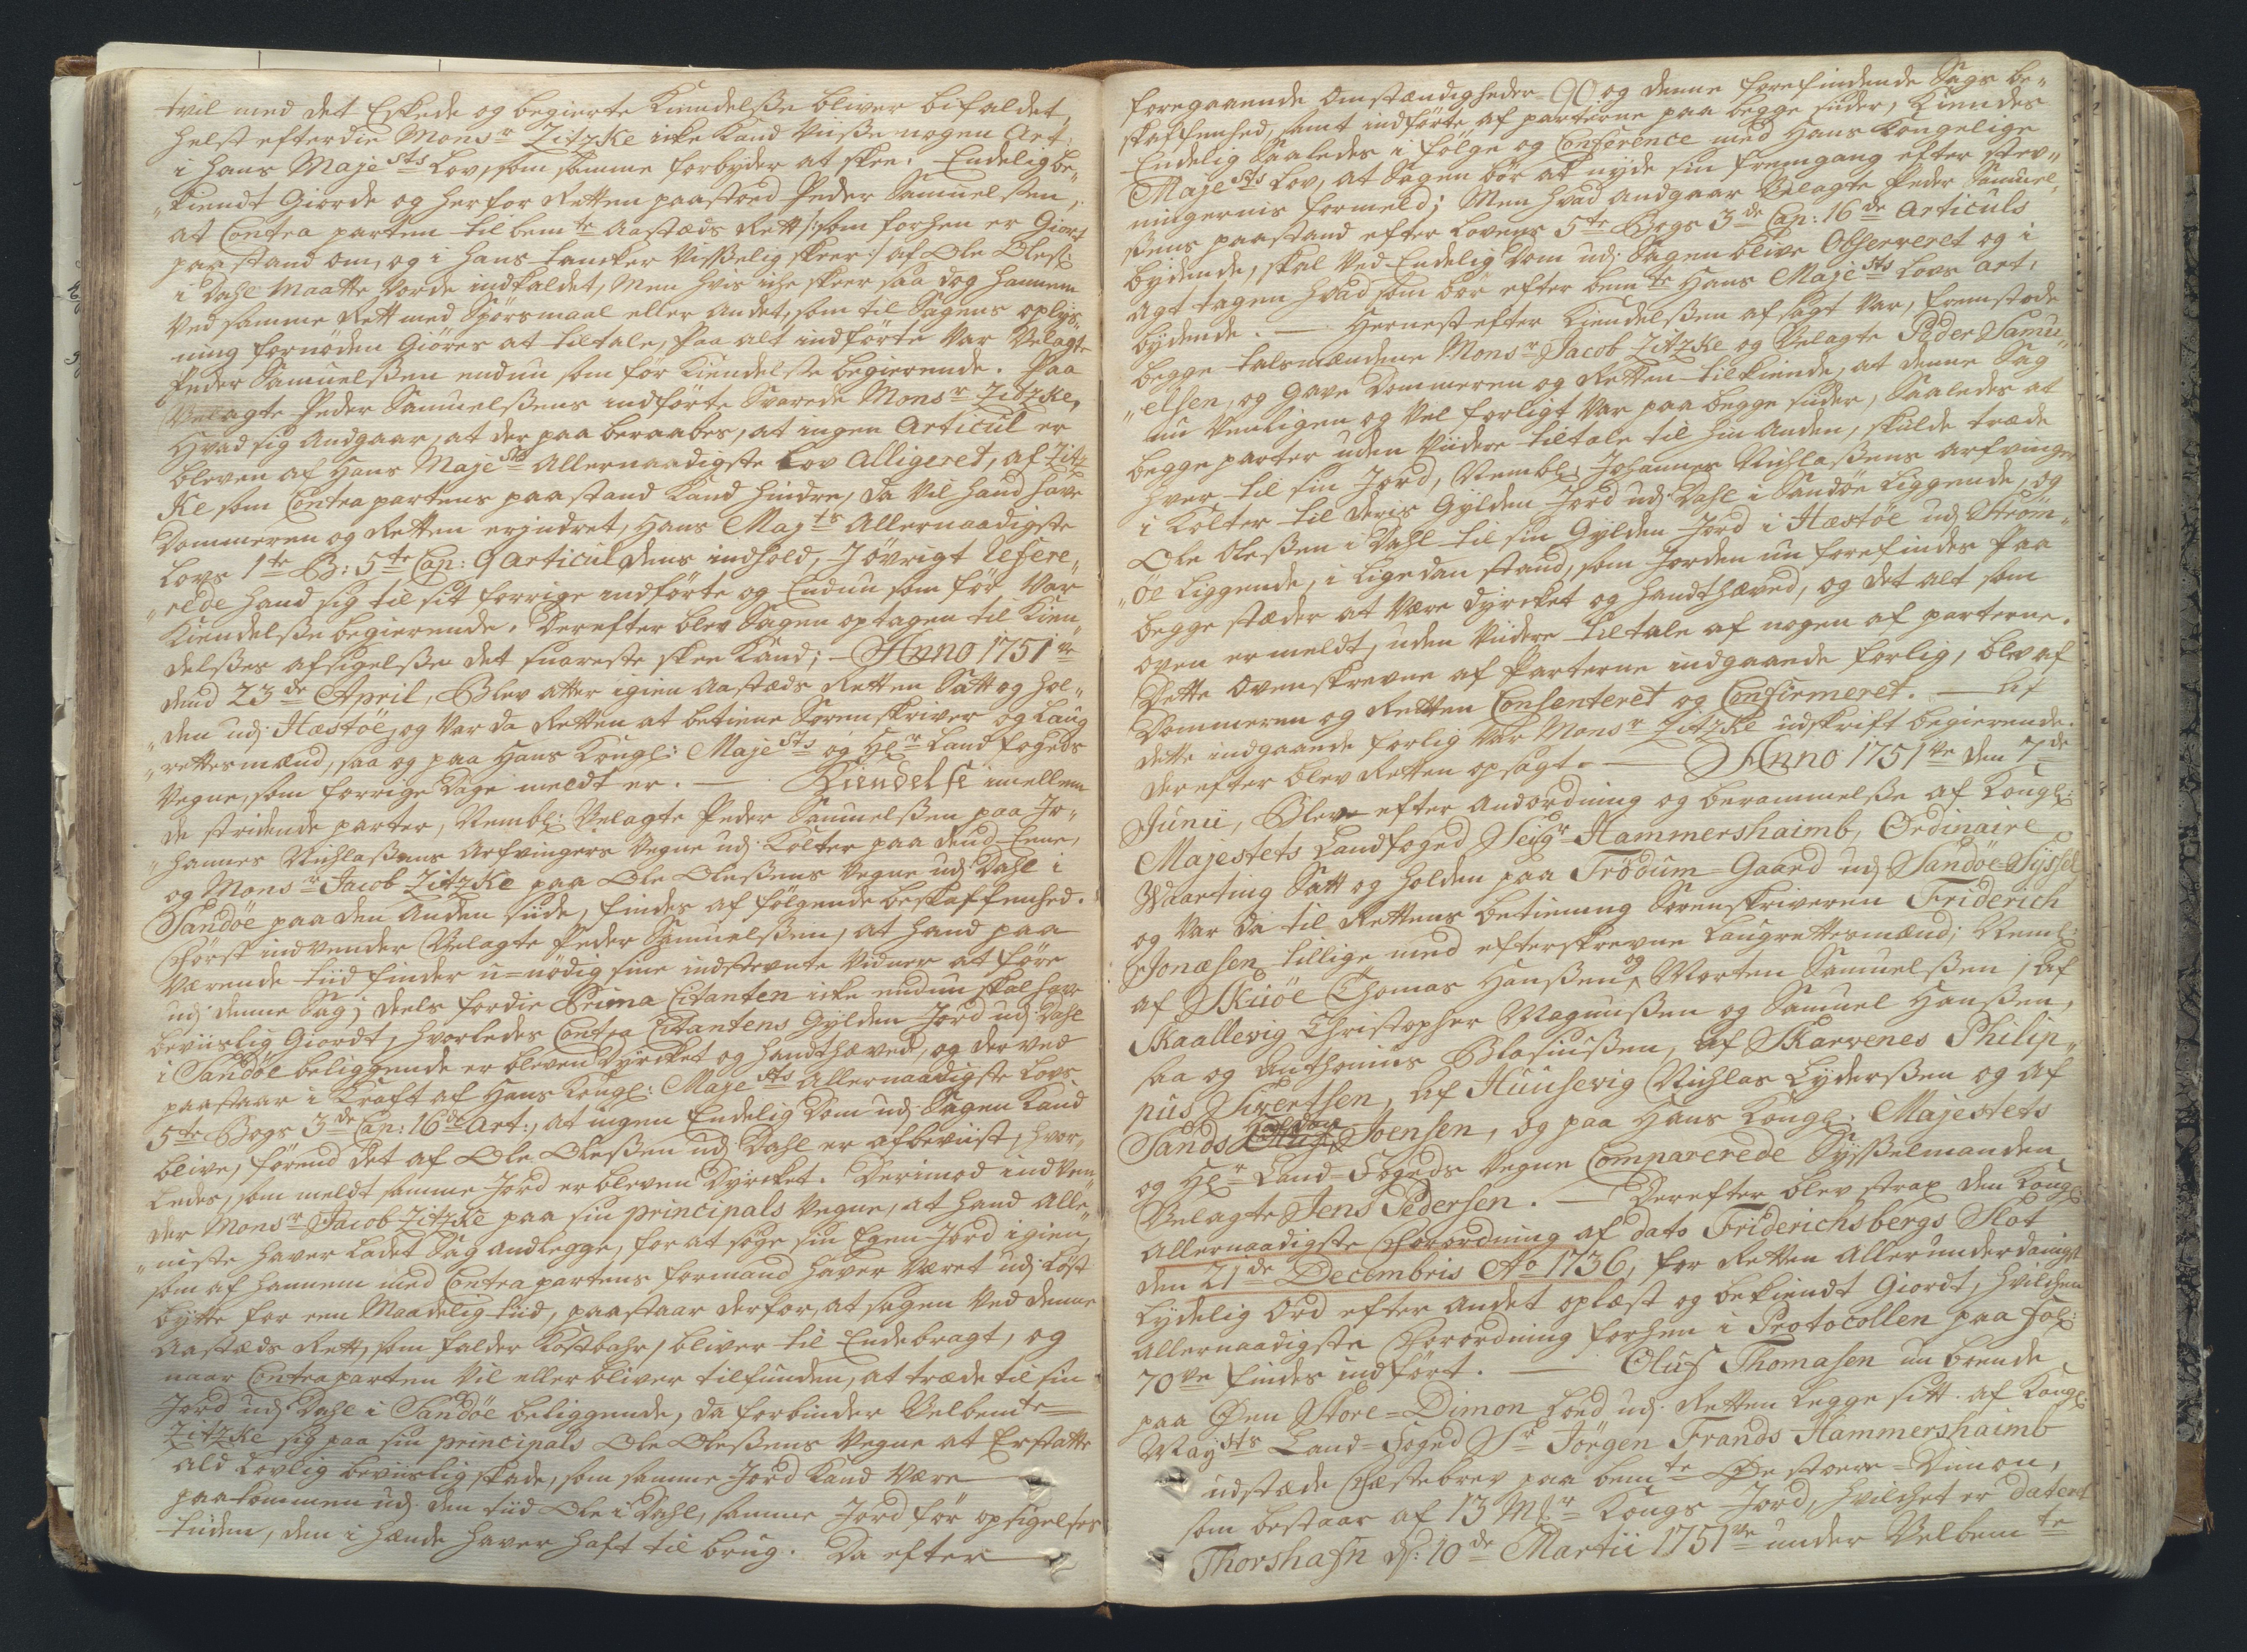 tvil med det Eskede og begierte Kiendelsse bliver bifaldet,
helst efterdie Monsr Zitzke icke kand Viisse nogen Art:
i Hans Majests Lov, som samme forbyder at skee. Endelig be„
„kiendt Giorde og herfor Retten paastoed Peder Samuelsen,
at Contra parten til bemte Aastæds Rett /: som forhen er Giort
paastand om, og i Hans tancker Visselig skeer :/ af Ole Olesl:
i Dahl Maatte Vorde indkaldet, Men hvis icke skeer saa dog hannem
Ved samme Rett med Spörsmaal eller Andet, som til Sagens oplys„
ning fornöden Giöres at tiltale, Paa alt indförte Var Velagte
Peder Samuelssen endnu som för Kiendelsse begierende. Paa
Velagte Peder Samuelssens indförte Svarede Monsr Zitzke,
Hvad sig Andgaar, at der paa beraabes, at ingen Articul er
bleven af Hans Majests Allernaadigste Lov Alligeret, af Zitz
ke som Contra partens paastand kand hindre, da Vil hand have
Dommeren og Retten erindret, Hans Mayts Allernaadigste
Lovs 1te B: 5te Cap: 9 Articul dens indhold, J övrigt refere„
„rede hand sig til sit forrige indförte og Endnu som för Var
Kiendelsse begierende. Derefter blev Sagen optagen til Kien„
delsses afsigelsse det snareste skee kand; — Anno 1751ve
dend 23de April, Blev atter igien Aastæds Retten Satt og hol„
„den udj Hæstöe, og Var da Retten at betiene Sorenskriver og Laug
„rettesmænd, saa og paa Hans Kongl: Majests og Hr Landfogeds
Vegne, som forrige Dage meldt er. — Kiendelse imellem
de stridende parter, Nembl: Velagte Peder Samuelssen paa Jo„
„hannes Nichlassens Arfvingers Vegne udj Kolter paa dend Eene,
og Monsr Jacob Zitzke paa Ole Olessens Vegne udj Dahl i
Sandöe paa den Anden siide, findes af fölgende beskaffenhed.
Först indvender Velagte Peder Samuelssen, at hand paa
Værende tiid finder u=nödig sine indstevnte Vidner at före
udj denne Sag; deels fordie Prima Citanten icke endnu skal have
beviislig Giordt, hvorledes Contra Citantens Gylden Jord udj Dahl
i Sandöe beliggende er bleven dyrcket og handthæved, og derved
paastaar i Kraft af Hans Kongl: Majests Allernaadigste Lovs
5te Bogs 3de Cap: 16de Art:, at ingen Endelig Dom udj Sagen kand
blive, förend det af Ole Olessen udj Dahl er afbeviist, hvor„
ledes, som meldt samme Jord er bleven Dyrcket. Derimod indven„
der Monsr Jacob Zitzke paa sin principals Vegne, at hand Alle„
„niste haver ladet Sag andlegge, for at söge sin Egen Jord igien,
som af hannem med Contra partens formand haver Været udj Lost
bytte for een Maadelig tiid, paastaar derfor, at sagen Ved denne
Aastæds Rett, som falder kostbahr, bliver til Ende bragt, og
naar Contraparten Vil eller bliver tilfunden, at træde til sin
Jord udj Dahl i Sandöe beliggende, da forbinder Velbemte
Zitzke sig paa sin principals Ole Olessens Vegne at Erstatte
ald Lovlig beviislig skade, som samme Jord kand Være
paakommen udj den tiid Ole i Dahl, samme Jord för opsigelses
tiiden, den i hænde haver haft til brug. Da efter
foregaaende Omstændigheder 90 og denne forefindende Sags be„
skaffenhed, samt indförte af parterne paa begge siider, kiendes
Endelig Saaledes i fölge og Conference med Hans Kongelige
Majests Lov, at Sagen bör at nyde sin fremgang efter Stev„
ningernis formeld; Men hvad andgaar Velagte Peder Samuel„
ssens paastand efter Lovens 5te Bogs 3de Cap: 16de Articuls
bydende, skal Ved Endelig Dom udj Sagen blive Observeret og i
agt tagen hvad som bör efter bemte Hans Majests Lovs Art,
bydende. — Hernest efter Kiendelssen afsagt Var, fremstode
begge talsmændene Monsr Jacob Zitzke og Velagte Peder Samu„
„elsen, og Gave Dommeren og Retten tilkiende, at denne Sag
nu Venligen og Vel forligt Var paa begge siider, Saaledes at
begge parter uden Viidere tiltale til hin Anden, skulde træde
hver til sin Jord, Nembl: Johannes Nichlassens Arfvinger
i Kolter til deris Gylden Jord udj Dahl i Sandöe liggende, og
Ole Olessen i Dahl til sin Gylden Jord i Hæstöe udj Ström„
„öe liggende, i ligedan stand, som Jorden nu forefindes Paa
begge stæder at Være dyrcket og handthæved, og det alt som
oven er meldt, uden Viidere tiltale af nogen af parterne.
Dette Ovenskrevne af Parterne indgaaende forlig, blev af
Dommeren og Retten Consenteret og Confirmeret. — Af
dette indgaaende forlig Var Monsr Zitzke udskrift begierende.
derefter blev Retten opsagt. — Anno 1751ve den 7de
Junii, Blev efter Andordning og berammelsse af Kongl:
Majestets Landfoged Seigr Hammershaimb, Ordinaire
Waarting Satt og holden paa Tröðum=Gaard udj Sandöe=Syssel,
og Var da til Rettens betiening Sorenskriveren Friderich
Jonæsen tillige med efterskrevne Laugrettesmænd; Nembl:
af Skúöe Thomas Hanssen og Morten Samuelssen; Af
Skaallevig Christopher Magnussen og Samuel Hanssen,
saa og Anthonius Blasiussen, af Skarvenes Philip„
pus Sivertsen, af Húusevig Nichlas Lyderssen og af
Sands Joensen, og paa Hans Kongl: Majestets
og Hr Land=Fogeds Vegne Comparerede Sysselmanden
Velagte Jens Pedersen. — Derefter blev strax den Kongl:
Allernaadigste Forordning af dato Friderichsbergs Slot
den 21de Decembris Ao 1736, for Retten Allerunderdanigst
lydelig Ord efter andet oplæst og bekiendt Giordt, hvilcken
Allernaadigste Forordning forhen i Protocollen paa Fol:
70ve findes indfört. — Oluf Thomasen nu boende
paa Öen Store=Dimon loed udj Retten Legge sitt af Kongl:
Maysts Land=Foged Sr Jörgen Frands Hammershaimb
udstæde Fæstebrev paa bemte Öe Stoere=Dimon,
som bestaar af 13 Mkr Kongs Jord, hvilchet er dateret
Thorshafn d: 10de Martii 1751ve under Velbemte